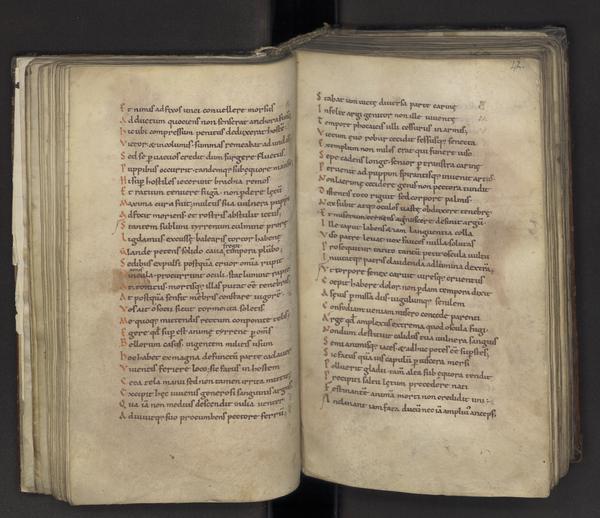 Et nimis adfixos unci convellere morsus
Adductum quotiens non senserat anchora funē
Hic ubi compressum penitus deduxerat hostē
Victor & incolumis summas remeabat ad undas
Sed se p vacuos credit dum surgere fluctus
Puppibus occurrit tandemq; sub equore mansit
Hi sup hostiles iecerunt brachia remos
Et ratium tenuere fugā. non pdere letū
Maxima cura fuit. multus sua vulnera puppi
Adfixit moriens et rostris abstulit ictus.
Stantem sublimi tyrrenum culmine prore
Ligdamus excussis balearis tortor habene
Glande petens solido cava fregit tempora plūbo.
Sedibus expulsi postquā cruor omia rupit
Vincula procurrunt oculi. stat lumine rapto
Attonitus mortisq; illas putat eē tenebras.
At postquā sensit mēbris constare vigorē
Vos ait o socii sicut tormenta soletis
Me quoq; mittendis rectum componite telis
Egere qđ sup est animę tyrrene p omis
Bellorum casus. ingentem militis usum
Hoc habet ex magna defunctū parte cadaver
Viventis feriere loco. sic fatus in hostem
Ceca tela manu sed non tamen irrita mittit
Excipit hęc iuvenis generosi sanguinis argus
Qua iā non medius descendit in ilia venter
Adiuvitq; suo procumbens pectore ferrū.
42.
Stabat iam victę diversa parte carinę
Infelix argi genitor non ille iuventę
Tempore phocaicis ulli cessurus in armis,
Victum evo robur cecidit fessusq; senecta
Exemplum non miles erat qui funere viso
Sepe cadens longe senior p transtra carine
Pervenit ad puppim spirantisq; invenit artus
Non lacrime cecidere genis non pectora tundit
Distentis toto riguit sed corpore palmis
Nox subit atq; oculos vaste obduxere tenebre
Et miserum cernens agnoscere desinit argū
Ille caput labens & iam languentia colla
Viso patre levat vox fauces nulla solutas
Prosequitur. tacito tantū petit oscula vultu
Invitatq; patris claudenda ad lumina dextrā
Vt torpore senex caruit viresq; cruentus
Coepit habere dolor. non pdam tempora dixit
A sevis pmissa dīs iugulumq; senilem
Confodiam veniam misero concede parenti
Arge qđ amplexus extrema quod oscula fugi
Nondum destituit calidus tua vulnera sanguis
Semianimisq; iaces & adhuc potes eē supstes.
Sic fatus quā vis capulū p viscera missi
Polluerit gladii tamē alta sub equora tendit
Precipiti saltu letum precedere nati
Festinantē animā morti non credidit uni:
Inclinant iam fata ducū nec iā amplius anceps.